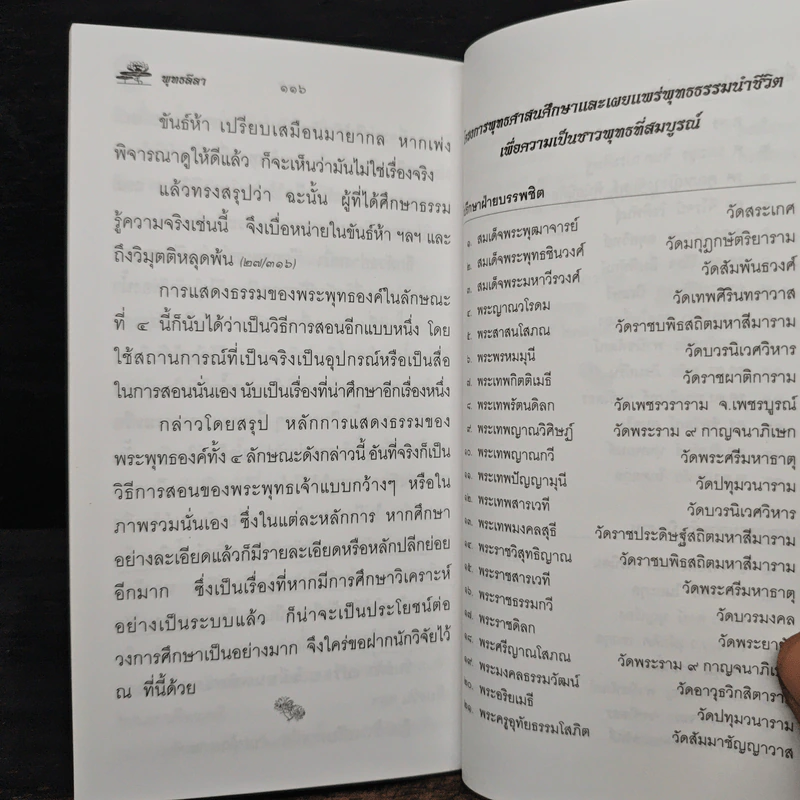 พุทธลีลา
๑๑๖
ขันธ์ห้า เปรียบเสมือนมายากล หากเพ่ง
พิจารณาดูให้ดีแล้ว ก็จะเห็นว่ามันไม่ใช่เรื่องจริง
แล้วทรงสรุปว่า ฉะนั้น ผู้ที่ได้ศึกษาธรรม
รู้ความจริงเช่นนี้ จึงเบื่อหน่ายในขันธ์ห้า ฯลฯ และ
ถึงวิมุตติหลุดพ้น (๒๗/๓๑๖)
การแสดงธรรมของพระพุทธองค์ในลักษณะ
ที่ ๔ นี้ก็นับได้ว่าเป็นวิธีการสอนอีกแบบหนึ่ง โดย
ใช้สถานการณ์ที่เป็นจริงเป็นอุปกรณ์หรือเป็นสื่อ
ในการสอนนั่นเอง นับเป็นเรื่องที่น่าศึกษาอีกเรื่องหนึ่ง
กล่าวโดยสรุป หลักการแสดงธรรมของ
พระพุทธองค์ทั้ง ๔ ลักษณะดังกล่าวนี้ อันที่จริงก็เป็น
วิธีการสอนของพระพุทธเจ้าแบบกว้างๆ หรือใน
ภาพรวมนั่นเอง ซึ่งในแต่ละหลักการ หากศึกษา
อย่างละเอียดแล้วก็มีรายละเอียดหรือหลักปลีกย่อย
อีกมาก ซึ่งเป็นเรื่องที่หากมีการศึกษาวิเคราะห์
อย่างเป็นระบบแล้ว ก็น่าจะเป็นประโยชน์ต่อ
วงการศึกษาเป็นอย่างมาก จึงใคร่ขอฝากนักวิจัยไว้
ณ ที่นี้ด้วย
โครงการพุทธศาสน์ศึกษาและเผยแพร่พุทธธรรมนำชีวิต
เพื่อความเป็นชาวพุทธที่สมบูรณ์
ปรึกษาฝ่ายบรรพชิต
๑. สมเด็จพระพุฒาจารย์ วัดสระเกศ
๒. สมเด็จพระพุทธชินวงศ์ วัดมกุฎกษัตริยาราม
๓. สมเด็จพระมหาวีรวงศ์ วัดสัมพันธวงศ์
๔. พระญาณวโรดม วัดเทพศิรินทราวาส
๕. พระสาสนโสภณ วัดราชบพิธสถิตมหาสีมาราม
๖. พระพรหมมุนี วัดบวรนิเวศวิหาร
๗. พระเทพกิตติเมธี วัดราชผาติการาม
๘. พระเทพรัตนดิลก วัดเพชรวราราม จ.เพชรบูรณ์
๙. พระเทพญาณวิศิษฏ์ วัดพระราม ๙ กาญจนาภิเษก
๑๐. พระเทพญาณกวี วัดพระศรีมหาธาตุ
๑๑. พระเทพปัญญามุนี วัดปทุมวนาราม
๑๒. พระเทพสารเวที วัดบวรนิเวศวิหาร
๑๓. พระเทพมงคลสุธี วัดราชประดิษฐ์สถิตมหาสีมาราม
๑๔. พระราชวิสุทธิญาณ วัดราชบพิธสถิตมหาสีมาราม
๑๕. พระราชสารเวที วัดพระศรีมหาธาตุ
๑๖. พระราชธรรมกวี วัดบวรมงคล
๑๗. พระราชดิลก
๑๘. พระศรีญาณโสภณ วัดพระราม ๙ กาญจนาภิเษก
๑๙. พระมงคลธรรมวัฒน์ วัดอาวุธวิกสิตาราม
๒๐. พระอริยเมธี วัดปทุมวนาราม
๒๑. พระครูอุทัยธรรมโสภิต วัดสัมมาชัญญาวาส